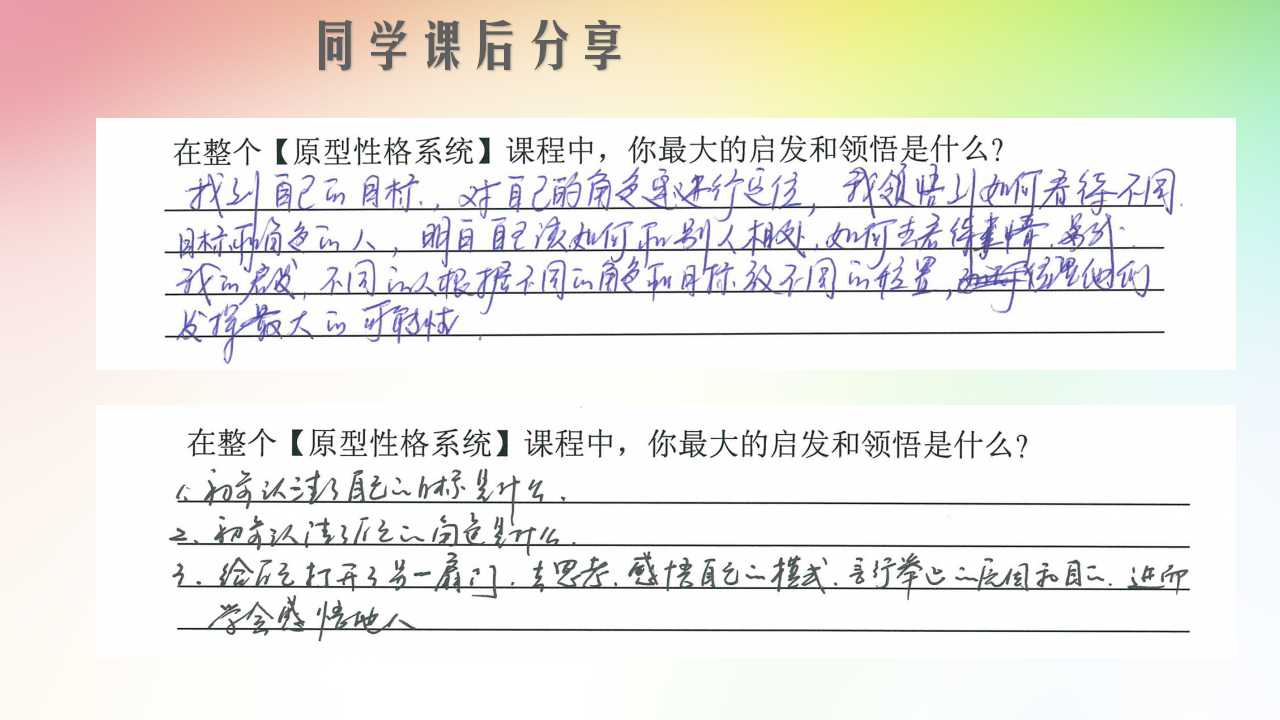 同学课后分享
在整个【原型性格系统】课程中，你最大的启发和领悟是什么？
找到自己的目标，对自己的角色进行定位，我领悟到如何看待不同
目标和角色的人，明白自己该如何和别人相处，如何去看待事情，
我的启发，不同的人根据不同的角色和目标放不同的位置，他们
发挥最大的可能性
在整个【原型性格系统】课程中，你最大的启发和领悟是什么？
1、初步认清了自己的目标是什么。
2、初步认清了自己的角色是什么。
3、给自己打开了另一扇门，去思考、感悟自己的模式、言行举止的原因和目的，进而
学会感悟他人